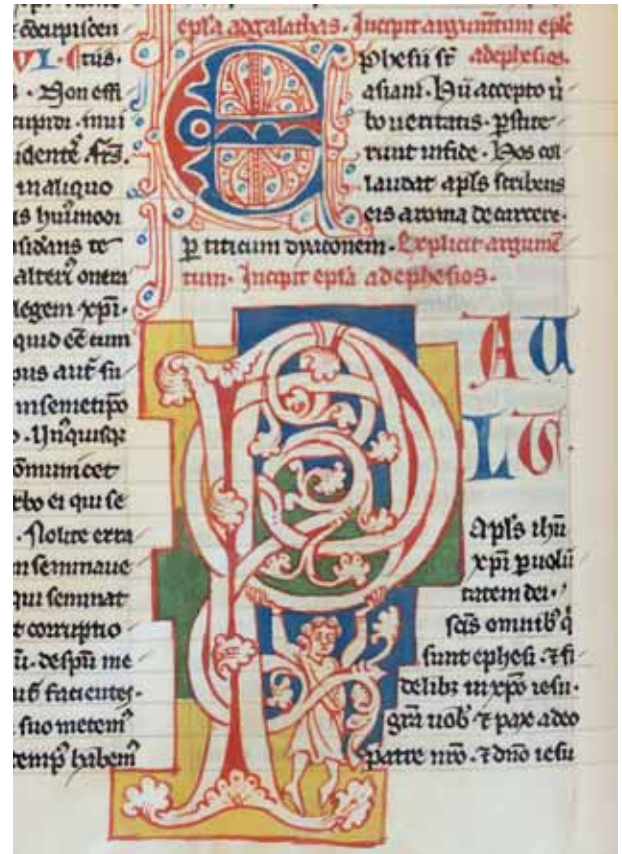 ꝯcupiscen
VI. Ctus.
. Non effi
cupidi. inui
identẽ. frs̃.
in aliquo
siderans te
alteri᾽ onera
legem xp̃i.
quid eẽ cum
pus aut̃ su
in semetip̃o
õmunicet
rbo ei qui se
. Nolite erra
n seminaue
qui seminat
t corruptio
ũ. de sp̃u me
facientes.
suo metem᾽
temp᾽ habem᾽
epl̃a ad galathas. Incipit argum̃tum epl̃e
Ephesii st̃ ad ephesios.
asiani. Hii accepto ũ
bo ueritatis. ꝑstite
runt in fide. Hos col
laudat apl̃s scribens
eis a roma de carcere.
ꝑ titicum dyaconem. Explicit argumẽ
tum. Incipit epl̃a ad ephesios.
PAU
LUS.
Apl̃s ihũ
xp̃i ꝑ uolũ
tatem dei.
sc̃is omnib᾽ q̃
sunt ephesi. ⁊ fi
delibꝫ in xp̃o iesu.
gr̃a uob᾽ ⁊ pax a deo
patre nr̃o. ⁊ dño iesu